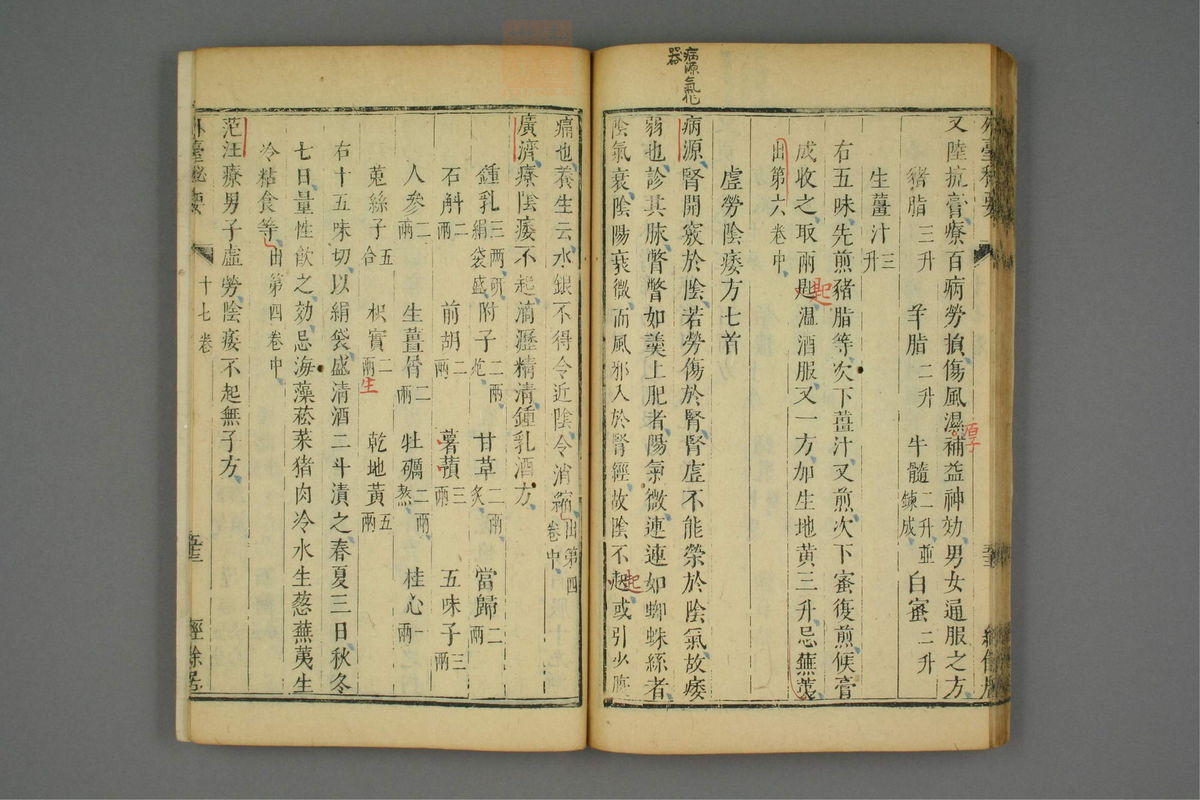 病源氣化
器
又陸抗膏療百病勞損傷風濕補益神効男女通服之方
豬脂三升 羊脂二升 牛髓二升並鍊成 白蜜二升
生薑汁三升
右五味先煎豬脂等次下薑汁又煎次下蜜復煎候膏
成收之取兩匙溫酒服又一方加生地黄三升忌蕪荑
出第六卷中
虛勞陰痿方七首
病源腎開竅於陰若勞傷於腎腎虛不能榮於陰氣故痿
弱也診其脉瞥瞥如羹上肥者陽氣微連連如蜘蛛絲者
陰氣衰陰陽衰微而風邪入於腎經故陰不起或引少腹
起
痛也養生云水銀不得令近陰令消縮出第四卷中
廣濟療陰痿不起滴瀝精清鍾乳酒方
鍾乳三兩研絹袋盛 附子二兩炮 甘草二兩炙 當歸二兩
石斛二兩 前胡二兩 薯蕷三兩 五味子三兩
人參二兩 生薑屑二兩 牡礪二兩熬 桂心一兩
菟絲子五合 枳實二兩 乾地黄五兩
生
右十五味切以絹袋盛清酒二斗漬之春夏三日秋冬
七日量性飲之効忌海藻菘菜猪肉冷水生葱蕪荑生
冷粘食等出第四卷中
范汪療男子虛勞陰痿不起無子方
外臺秘要 十七卷 經餘居